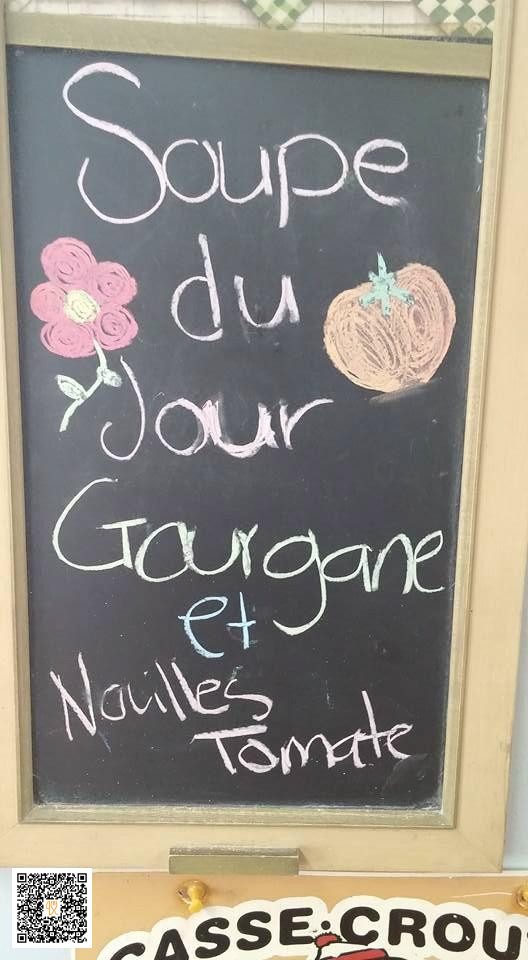 Soupe
du
Jour
Gourgane
et
Nouilles
Tomate
CASSE-CROU